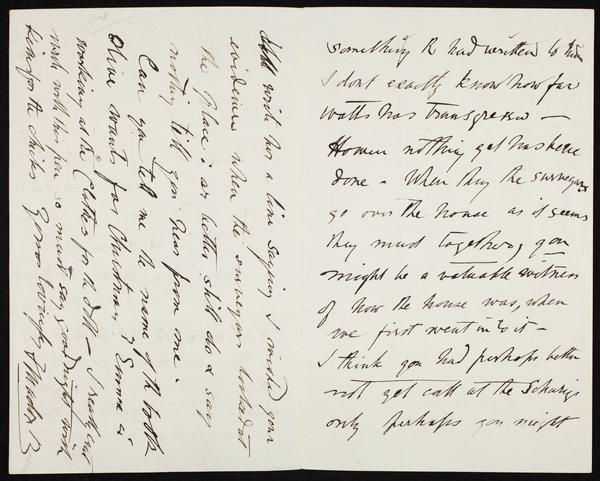 something R had written to him
I dont exactly know how far
Watts has transgressed —
However nothing yet has been
done - When they the surveyors
go over the house as it seems
they must together, you
might be a valuable witness
of how the house was, when
we first went in to it —
I think you had perhaps better
not yet call at the
only perhaps you might
write her a line saying I wished your
evidence when the surveyors looked at
the place, or better still do & say
nothing till you hear from me.
Can you tell me the name of the book
Olive wants for Christmas, & Emma is
working at the Clothes for the doll — I really cant
work with this pen so must say good night with
love for the chicks Yours lovingly F Madox B